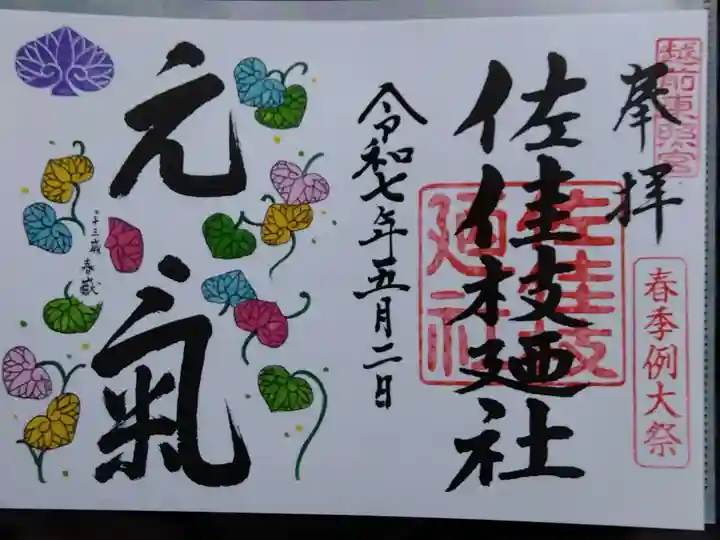 越前東照宮
奉拝
春季例大祭
佐佳枝廼社
佐佳枝
廼社
令和七年五月二日
元氣
十三歳
春嶽